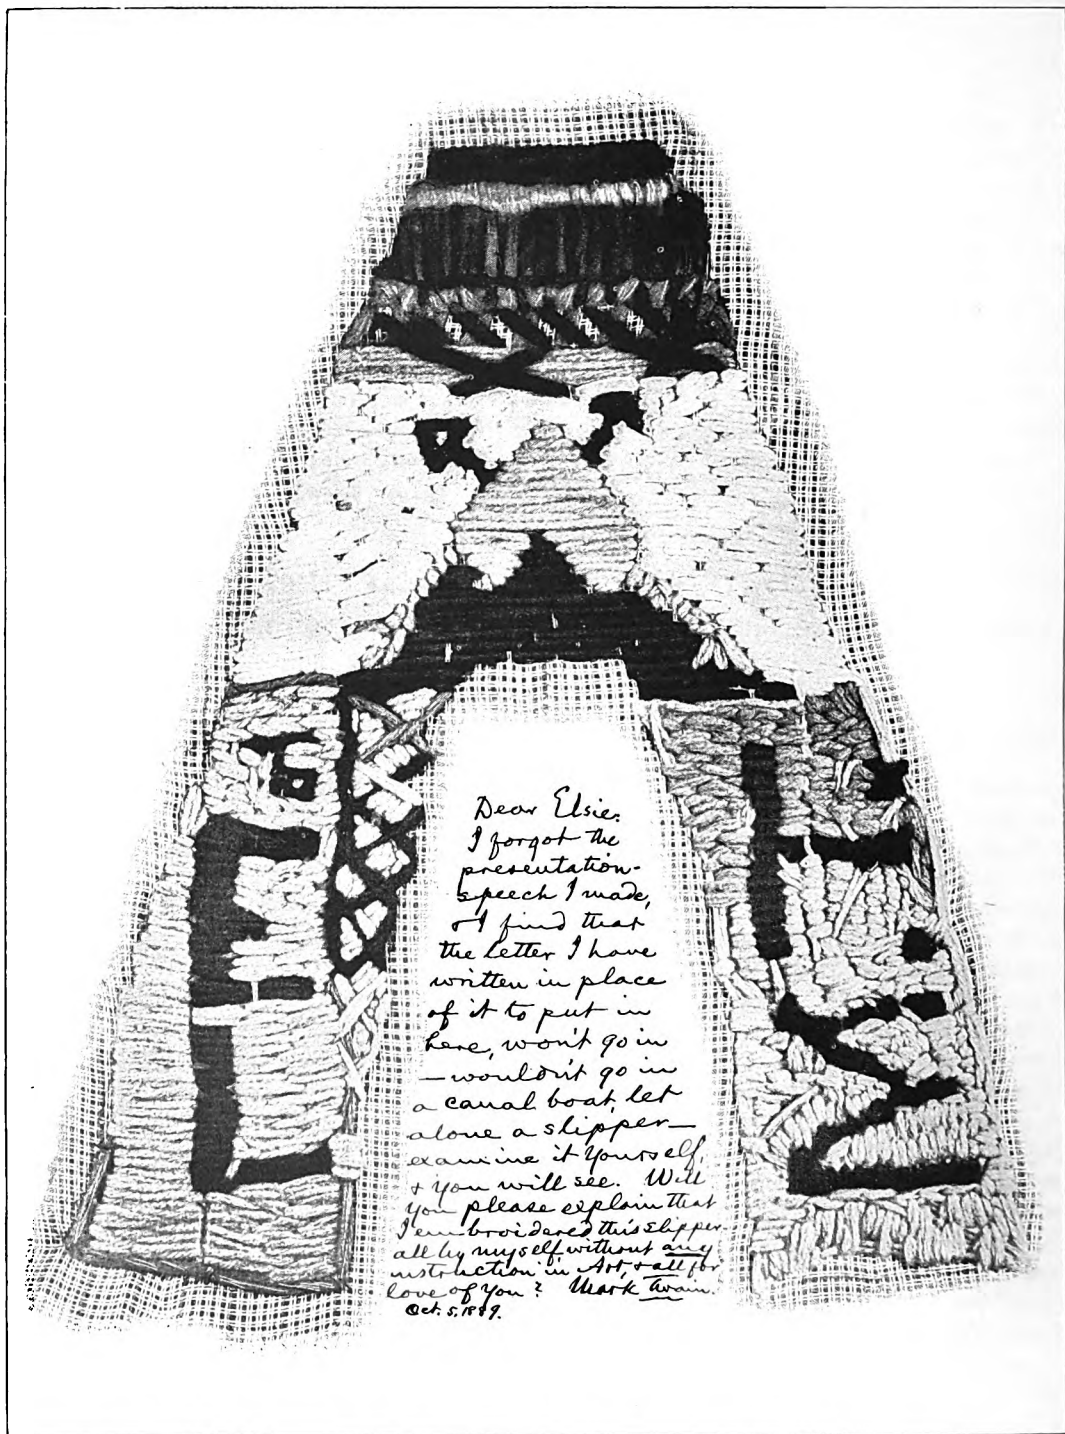 Dear Elsie:
I forgot the
presentation-
speech I made,
& I find that
the letter I have
written in place
of it to put in
here, won't go in
—wouldn't go in
a canal boat, let
alone a slipper—
examine it yourself,
& you will see. Will
you please explain that
I embroidered this slipper
all by myself without any
instruction in Art, & all for
love of you? Mark Twain.
Oct. 5, 1889.